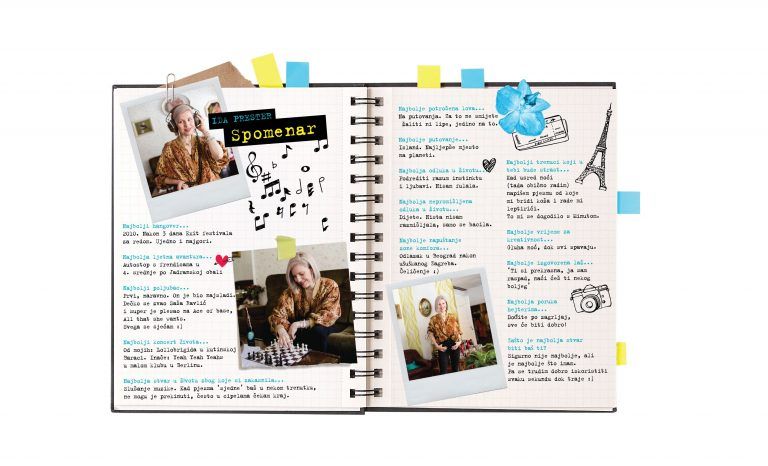 IDA PRESTER
Spomenar
Najbolji hangover...
2010. Nakon 3 dana Exit festivala
za redom. Ujedno i najgori.
Najbolja ljetna avantura...
Autostop s frendicama u
4. srednje po Jadranskoj obali
Najbolji poljubac...
Prvi, naravno. On je bio najslađi.
Dečko se zvao Saša Pavlić
i super je plesao na Ace of base,
All that she wants.
Svega se sjećam :)
Najbolji koncert života...
Od mojih: Lollobrigida u kutinskoj
Baraci. Inače: Yeah Yeah Yeahs
u malom klubu u Berlinu.
Najbolja stvar u životu zbog koje si zakasnila...
Slušanje muzike. Kad pjesma 'sjedne' baš u nekom trenutku,
ne mogu je prekinuti, često u cipelama čekam kraj.
Najbolje potrošena lova...
Na putovanja. Za to se umijete
žaliti ni lipe, jedino na to.
Najbolje putovanje...
Island. Najljepše mjesto
na planeti.
Najbolja odluka u životu...
Podrediti razum instinktu
i ljubavi. Nisam fulala.
Najbolja nepromišljena
odluka u životu...
Dijete. Ništa nisam
razmišljala, samo se bacila.
Najbolje napuštanje
zone komfora...
Odlazak u Beograd nakon
ušuškanog Zagreba.
Čeličenje :)
Najbolji trenuci koji u
tebi bude strast...
Kad usred noći
(tada obično radim)
napišem pjesmu od koje
mi bridi koža i rade mi
leptirići.
To mi se dogodilo s Minutom.
Najbolje vrijeme za
kreativnost...
Gluha noć, dok svi spavaju.
Najbolje izgovorena laž...
'Ti si prekrasna, ja sam
raspad, naći ćeš ti nekog
boljeg'
Najbolja poruka
hejterima...
Dođite po zagrljaj,
sve će biti dobro!
Zašto je najbolja stvar
biti baš ti?
Sigurno nije najbolje, ali
je najbolje što imam.
Pa se trudim dobro iskoristiti
svaku sekundu dok traje :)